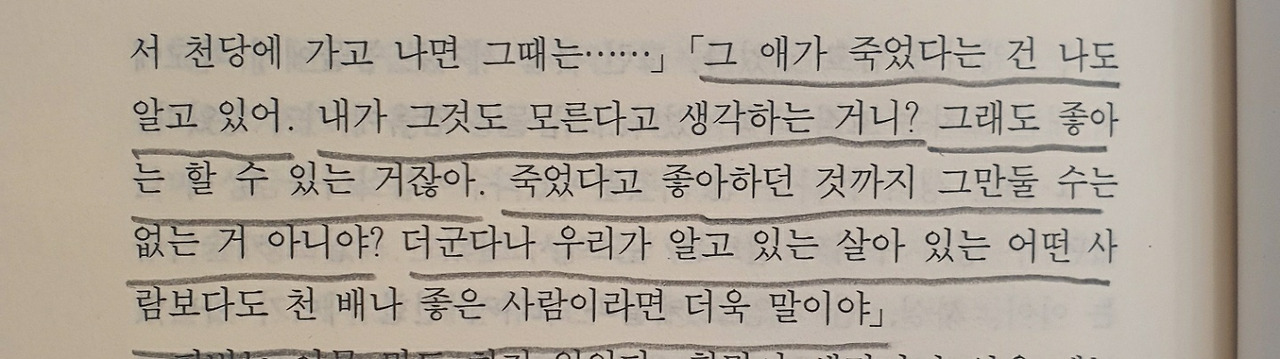 서 천당에 가고 나면 그때는……」「그 애가 죽었다는 건 나도
알고 있어. 내가 그것도 모른다고 생각하는 거니? 그래도 좋아
는 할 수 있는 거잖아. 죽었다고 좋아하던 것까지 그만둘 수는
없는 거 아니야? 더군다나 우리가 알고 있는 살아 있는 어떤 사
람보다도 천 배나 좋은 사람이라면 더욱 말이야」